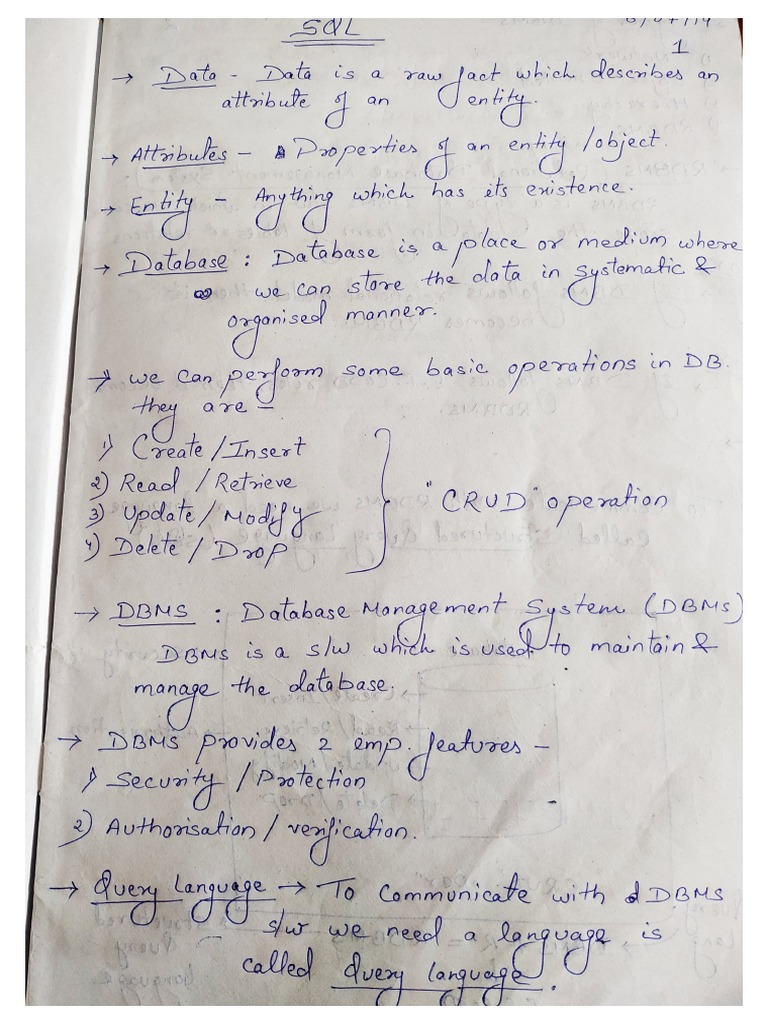 SQL
1
→ Data - Data is a raw fact which describes an
attribute of an entity.
→ Attributes - Properties of an entity /object.
→ Entity - Anything which has its existence.
→ Database : Database is a place or medium where
we can store the data in systematic &
organised manner.
→ we can perform some basic operations in DB.
they are -
1) Create / Insert
2) Read / Retrieve
3) Update / Modify
4) Delete / Drop
"CRUD" operation
→ DBMS : Database Management System (DBMS)
DBMS is a s/w which is used to maintain &
manage the database.
→ DBMS provides 2 imp. features -
1) Security / Protection
2) Authorisation / verification.
→ Query Language → To communicate with DBMS
s/w we need a language is
called Query language.